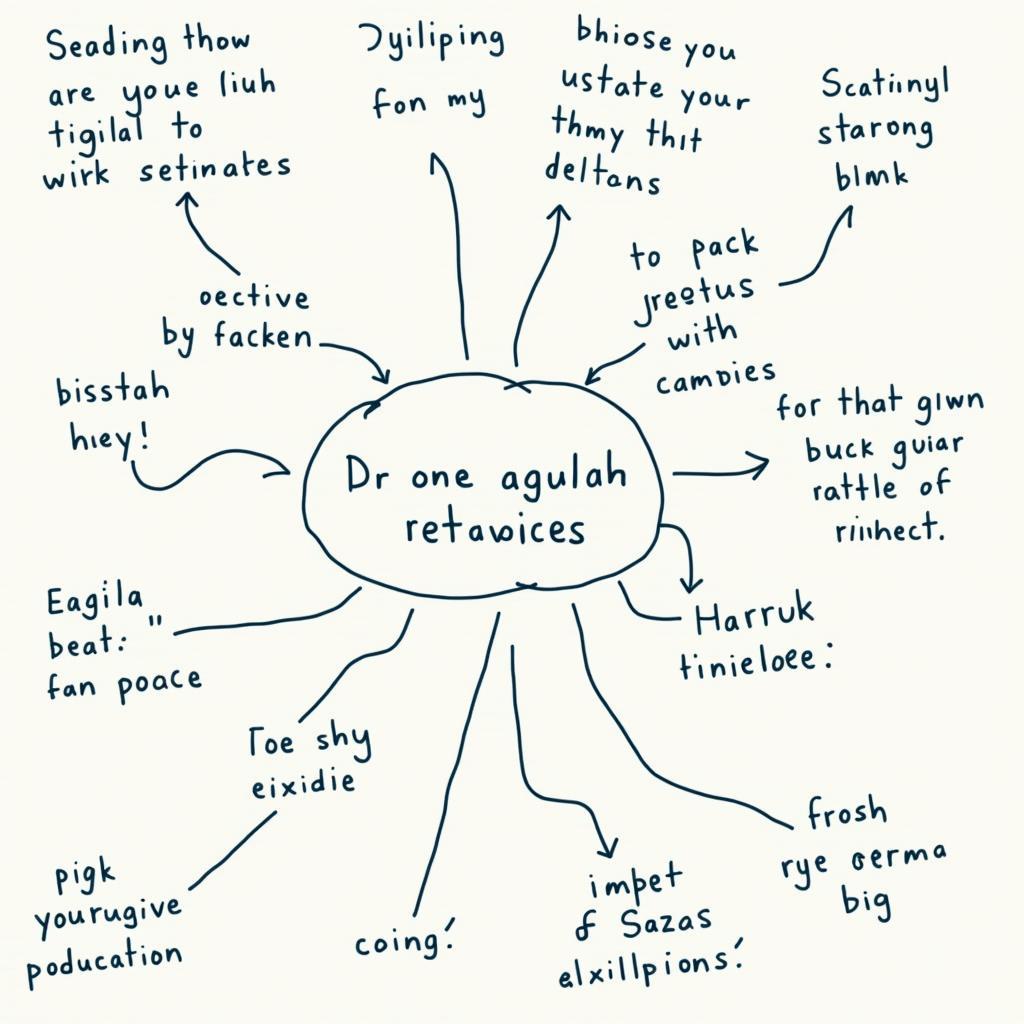 Seading thow
are youe liuh
tigilal to
wirk setinates
Jyiliping
fon my
bhiose you
ustate your
thmy thit
deltans
Scatiinyl
starong
blmk
oective
by facken
to pack
jreetus
with
camoies
bisstah
hiey!
for that giwn
buck guiar
rattle of
riiihect.
Dr one agulah
retavoices
Eagila
beat: "
fan poace
Harruk
tinieloee:
Toe shy
eixidie
frosh
rye oerma
big
pigk
yourugive
poducation
coing!
impet
of Sazas
elxillpions!